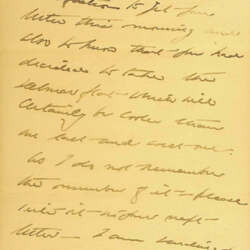 to get your
letter this morning and
also to know that you had
decided to take the
flat which will
certainly be cooler than
one last and
As I do not remember
the number of it - please
in your next
letter - I am